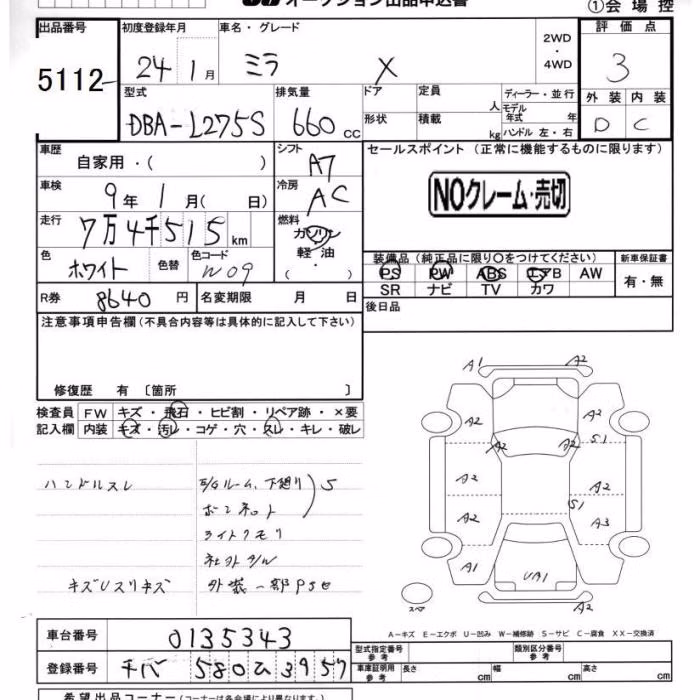 オークション出品申込書
①会場控
出品番号 初度登録年月 車名・グレード 2WD・4WD 評価点
5112 24 1月 ミラ X 3
型式 排気量 ドア 定員 人 ディーラー・並行 外装 内装
DBA-L275S 660cc 形状 積載 kg モデル年式 年 ハンドル 左・右 D C
車歴 自家用・( ) シフト A7 セールスポイント (正常に機能するものに限ります)
車検 9年 1月( 日) 冷房 AC NOクレーム・売切
走行 7万4千515km 燃料 ガソリン
軽油
( ・ )
色 ホワイト 色替 色コード W09 装備品 (純正品に限り〇をつけてください) 新車保証書
PS PW ABS エアB AW 有・無
SR ナビ TV カワ
R券 8640円 名変期限 月 日 後日品
注意事項申告欄 (不具合内容等は具体的に記入して下さい)
修復歴 有 〔箇所 〕
検査員 FW キズ・飛石・ヒビ割・リペア跡・×要
記入欄 内装 キズ・汚レ・コゲ・穴・スレ・キレ・破レ
ハンドルスレ E/Gルーム、下廻り S
ボンネット
ライトクモリ
社外A/W
キズUスリキズ 外装一部PSE
A1 A2
A2 A2
A2 A2 S1
A2 A2
S1
A2 A3
A1 UA1
スペア
A-キズ E-エクボ U-凹み W-補修跡 S-サビ C-腐食 XX-交換済
車台番号 0135343
型式指定番号 参考 類別区分番号 参考
登録番号 チバ 580 ひ 3957
車庫証明用 参考 長さ cm 幅 cm 高さ cm
希望出品コーナー (コーナーは各会場により異なります)